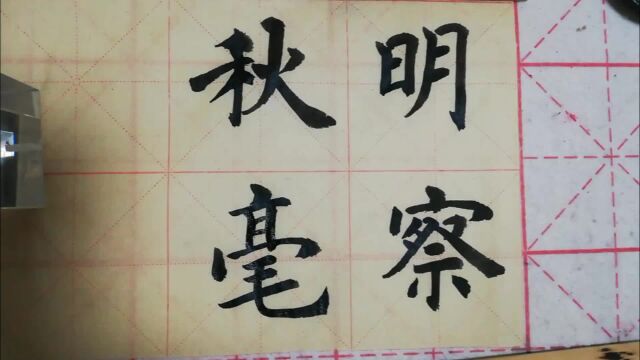 明察
秋毫